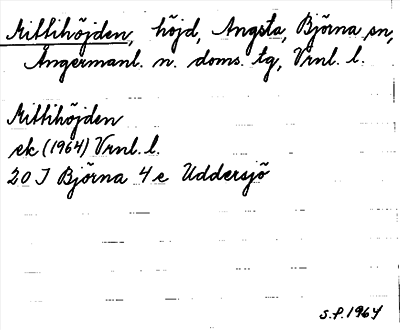 Mittihöjden, höjd, Angsta, Björna sn,
Ångermanl. n. doms. tg, Vrnl. l.
Mittihöjden
ek (1964) Vrnl. l.
20 I Björna 4 e Uddersjö
S.P. 1964